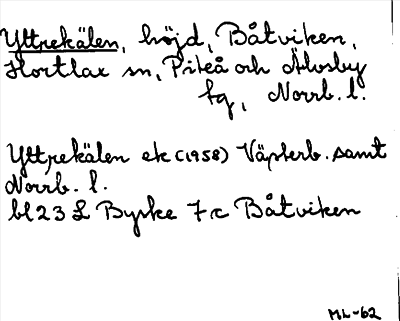 Yttrekälen, höjd, Båtviken,
Hortlax sn, Piteå och Älvsby
tg, Norrb. l.
Yttrekälen ek (1958) Västerb. samt
Norrb. l.
bl 23 L Byske 7c Båtviken
ML-62